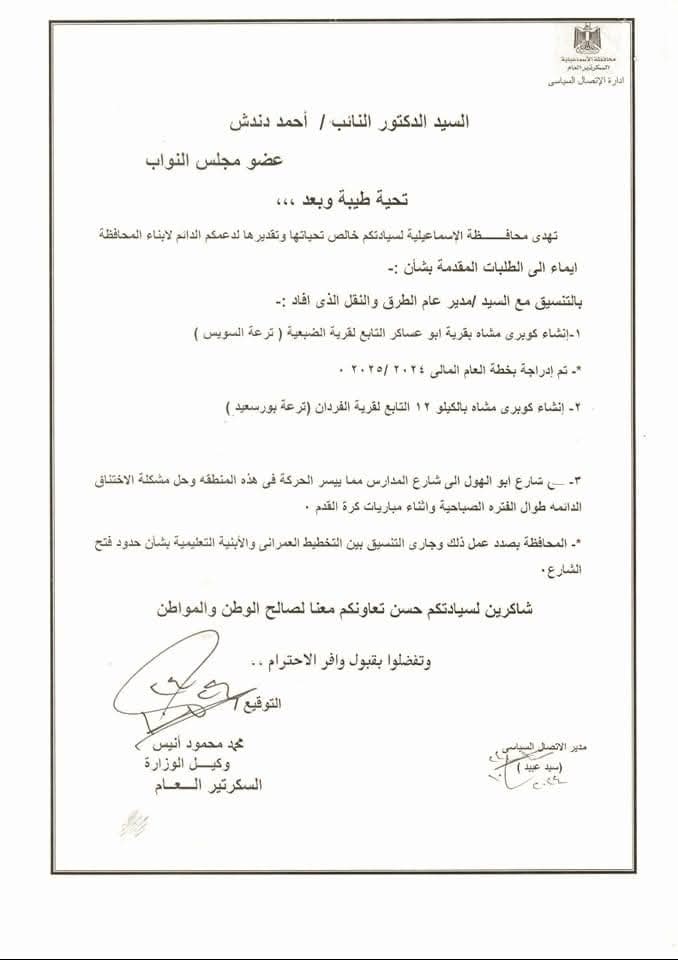 محافظة الأسماعيلية
السكرتير العام
ادارة الإتصال السياسى
السيد الدكتور النائب / أحمد دندش
عضو مجلس النواب
تحية طيبة وبعد ،،،
تهدى محافـــــظة الإسماعيلية لسيادتكم خالص تحياتها وتقديرها لدعمكم الدائم لابناء المحافظة
ايماء الى الطلبات المقدمة بشأن :-
بالتنسيق مع السيد /مدير عام الطرق والنقل الذى افاد :-
١-إنشاء كوبرى مشاه بقرية ابو عساكر التابع لقرية الضبعية ( ترعة السويس )
*- تم إدراجة بخطة العام المالى ٢٠٢٤ /٢٠٢٥ ٠
٢- إنشاء كوبرى مشاه بالكيلو ١٢ التابع لقرية الفردان (ترعة بورسعيد )
٣- شارع ابو الهول الى شارع المدارس مما ييسر الحركة فى هذه المنطقه وحل مشكلة الاختناق
الدائمه طوال الفتره الصباحية واثناء مباريات كرة القدم ٠
*- المحافظة بصدد عمل ذلك وجارى التنسيق بين التخطيط العمرانى والأبنية التعليمية بشأن حدود فتح
الشارع٠
شاكرين لسيادتكم حسن تعاونكم معنا لصالح الوطن والمواطن
وتفضلوا بقبول وافر الاحترام ..
التوقيع /
محمد محمود أنيس
وكيـــل الوزارة
السكرتير الـــعـــام
مدير الاتصال السياسى
(سيد عبيد )